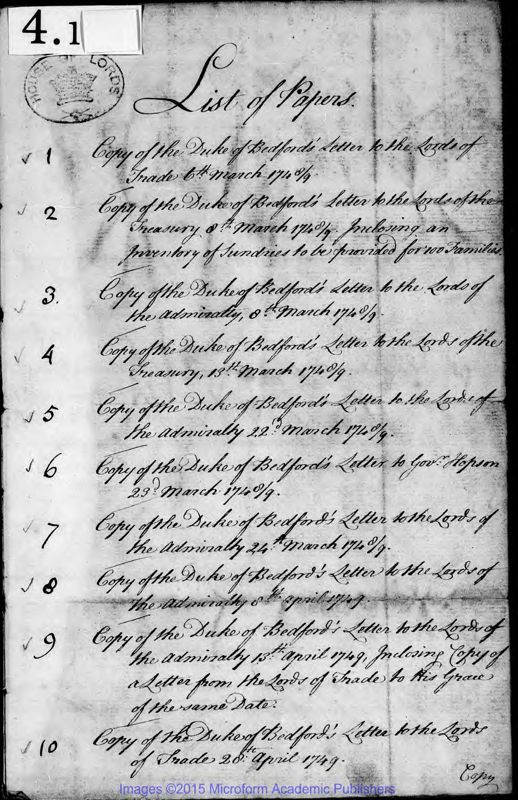 4.1
HOUSE OF LORDS
List of Papers.
1 Copy of the Duke of Bedford's Letter to the Lords of
Trade 6th March 1748/9.
2 Copy of the Duke of Bedford's Letter to the Lords of the
Treasury 8th March 1748/9. Inclosing an
Inventory of Sundries to be provided for 100 Families.
3. Copy of the Duke of Bedford's Letter to the Lords of
the Admiralty, 8th March 1748/9.
4 Copy of the Duke of Bedford's Letter to the Lords of the
Treasury, 13th March 1748/9.
5 Copy of the Duke of Bedford's Letter to the Lords of
the Admiralty 22d March 1748/9.
6 Copy of the Duke of Bedford's Letter to Govr. Hopson
23d March 1748/9.
7 Copy of the Duke of Bedford's Letter to the Lords of
the Admiralty 24th March 1748/9.
8 Copy of the Duke of Bedford's Letter to the Lords of
the Admiralty 8th April 1749.
9 Copy of the Duke of Bedford's Letter to the Lords of
the Admiralty 15th April 1749, Inclosing Copy of
a Letter from the Lords of Trade to His Grace
of the same Date.
10 Copy of the Duke of Bedford's Letter to the Lords
of Trade 20th April 1749.
Copy
Images ©2015 Microform Academic Publishers